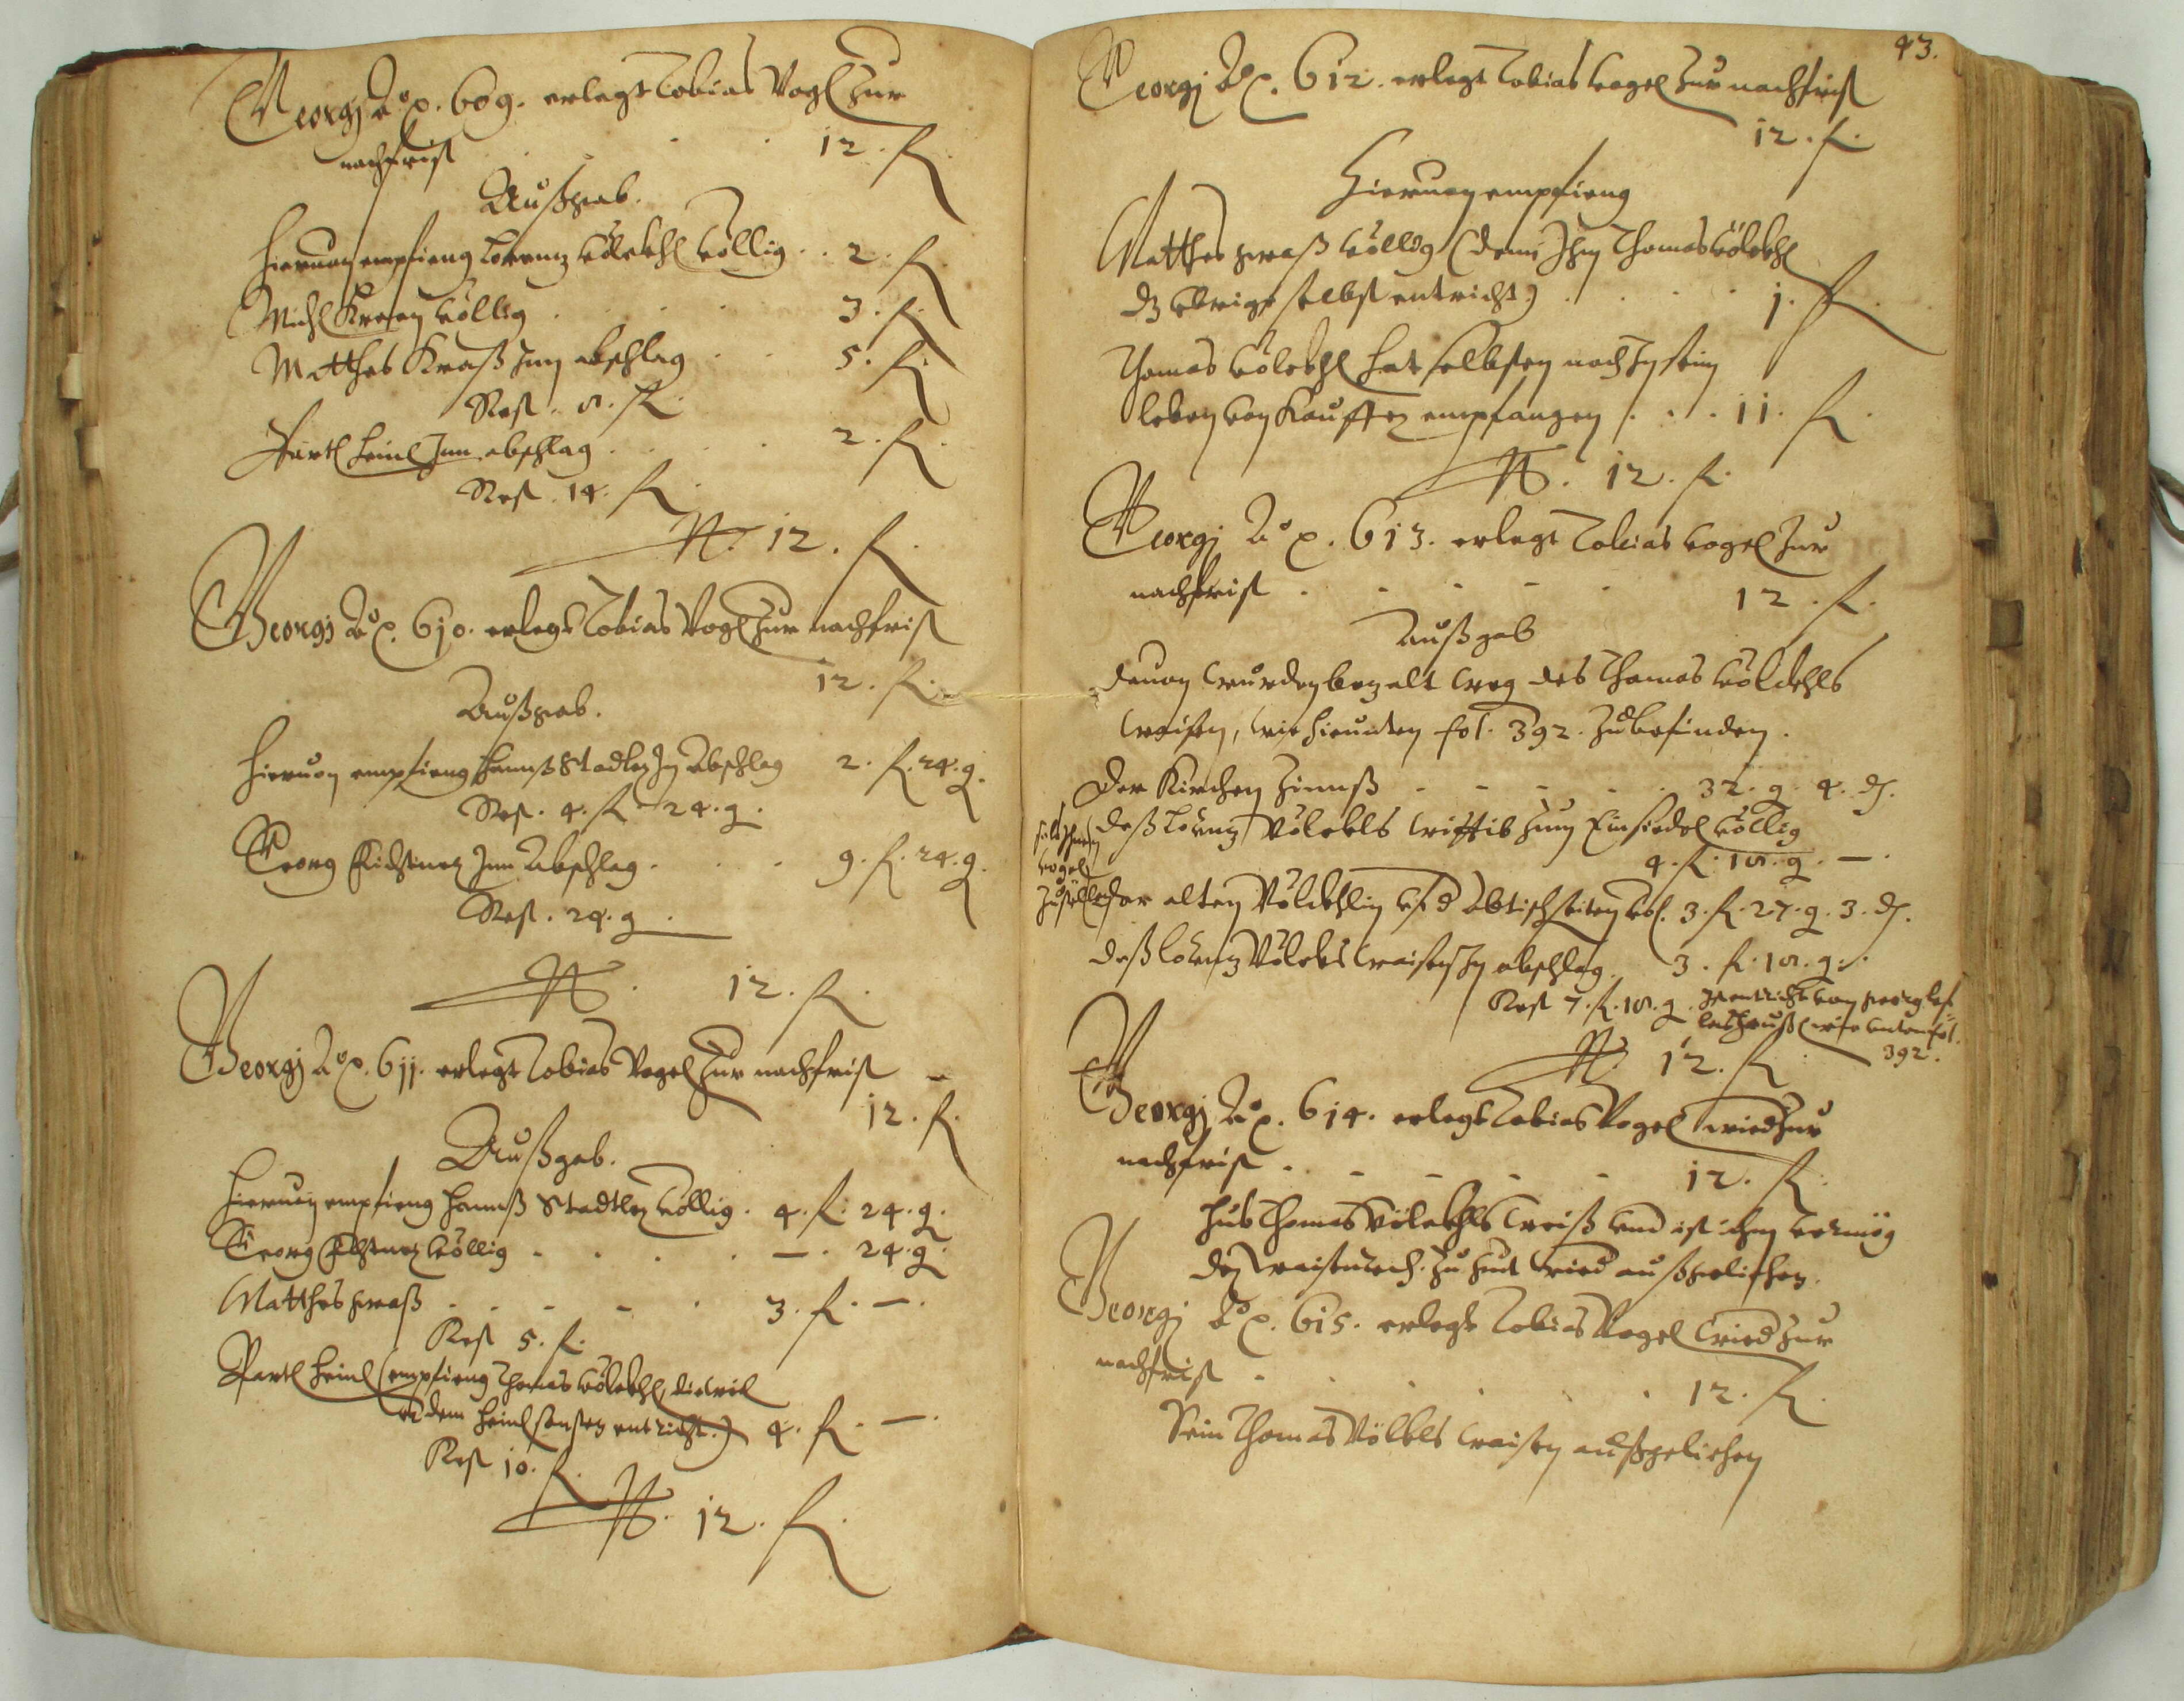 Georgj Aō p. 609. erlegt Tobias Vogl zur
nachfrist . . . 12. fl.
Außgab.
Hieruon empfieng Lorenz Völckhl völlig . . 2. fl.
Michl völlig . . . 3. fl.
Matthes Kraß zum abschlag . . 5. fl.
Rest. 8. fl.
Bartl Heinl zum abschlag . . . 2. fl.
Rest. 14. fl.
12. fl.
Georgj Aō p. 610. erlegt Tobias Vogl zur nachfrist
12. fl.
Außgab.
Hieruon empfieng Hannß Stadler In Abschlag 2. fl. 24. g.
Rest. 4. fl. 24. g.
Georg zum Abschlag . . . 9. fl. 24. g.
Rest. 24. g.
12. fl.
Georgj Aō p. 611. erlegt Tobias Vogel zur nachfrist –
12. fl.
Außgab.
Hieruon empfieng Hannß Stadtler völlig . 4. fl. 24. g.
Georg völlig – . . . – . 24. g.
Matthes Graß . . . – . 3. fl. – .
Rest 5. fl.
Bartl Heinl (empfieng Thomas Völckhl, dieweil
er dem Heinl entricht.) 4. fl. – .
Rest 10. fl.
12. fl.
43.
Georgj Aō p. 612. erlegt Tobias Vogel zur nachfrist
12. fl.
Hieruon empfieng
Matthes Graß völlig (denn Ihm Thomas Völckhl
dz vbrige selbst entricht) . . . . 1. fl.
Thomas Völckhl hat selbsten noch In sein
leben von Kauffer empfangen . . . 11. fl.
12. fl.
Georgj Aō p. 613. erlegt Tobias Vogel zur
nachfrist . - - - . 12. fl.
Außgab
Dauon wurden bezalt weg. des Thomas Völckhls
waisen, wie hieunten fol. 392. Zubefinden.
Der Kirchen Zinnß - - - . . 32. g. 4. d.
Deß Lorenz Völckls zum Einsiedel völlig
Vogel
4. fl. 18. g. – .
Der alten Völckhlin 3. fl. 27. g. 3. d.
Deß Lorenz Völckls waisen In abschlag . 3. fl. 18. g. .
Rest 7. fl. 18. g.
wie unten fol.
392.
12. fl.
Georgj Aō p. 614. erlegt Tobias Vogel wied zur
nachfrist . - - - - 12. fl.
Thomas Völckhls vnd ist ihm vermög
der zu wied außgelichen.
Georgj Aō p. 615. erlegt Tobias Vogel wied zur
nachfrist - . . . . 12. fl.
Sein Thomas Völkls waisen außgelichen